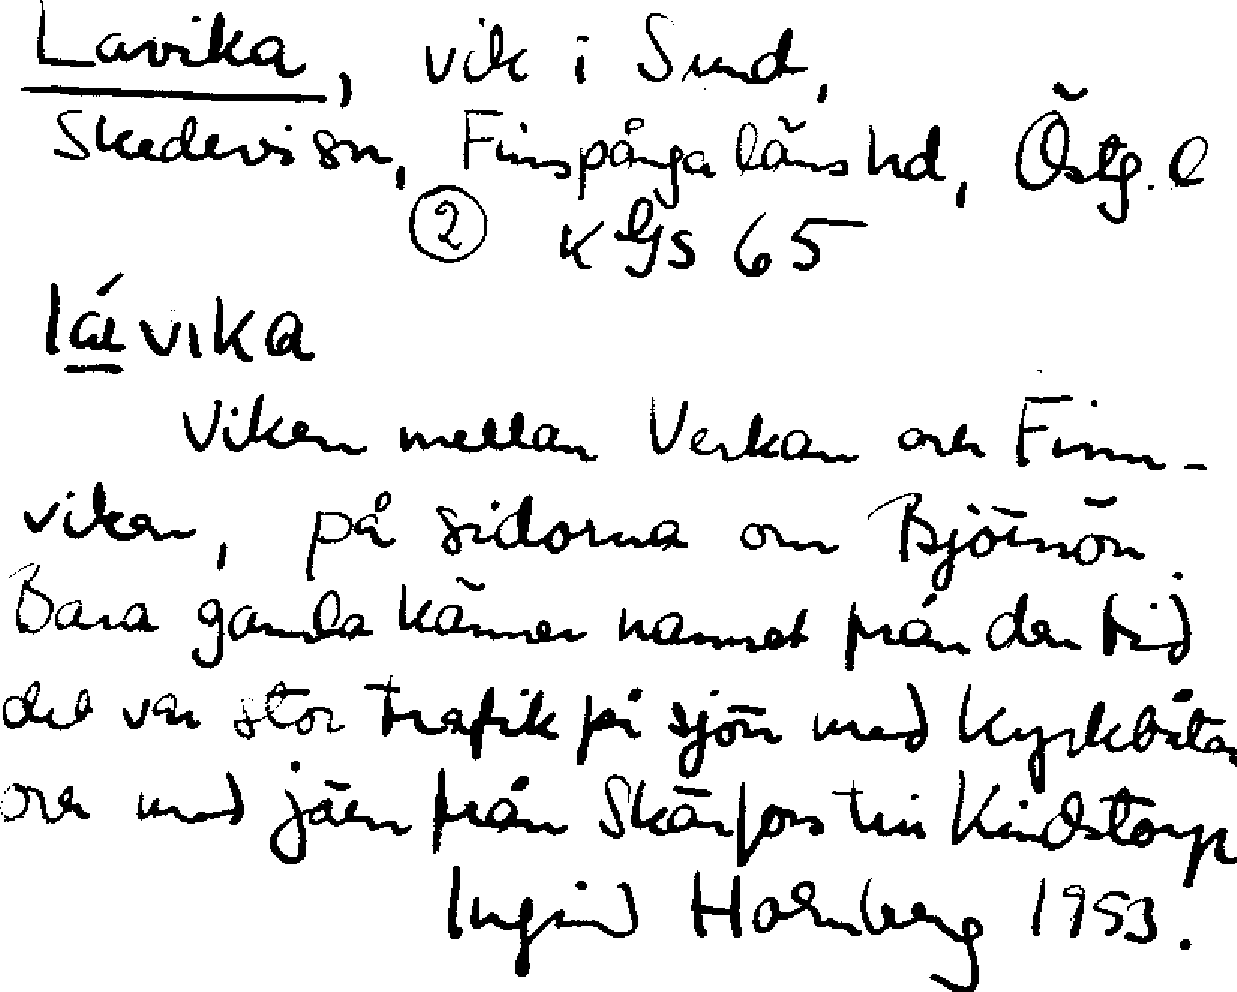 Lavika, vik i Sund,
Skedevi sn, Finspånga läns hd, Östg. l
② K Gs 65
lávika
Viken mellan Verkan och Finn-
viken, på sidorna om Björnön.
Bara gamla känner namnet från den tid
det var stor trafik på sjön med kyrkbåtar
och med järn från Skärfors till Kindstorp
Ingrid Holmberg 1953.